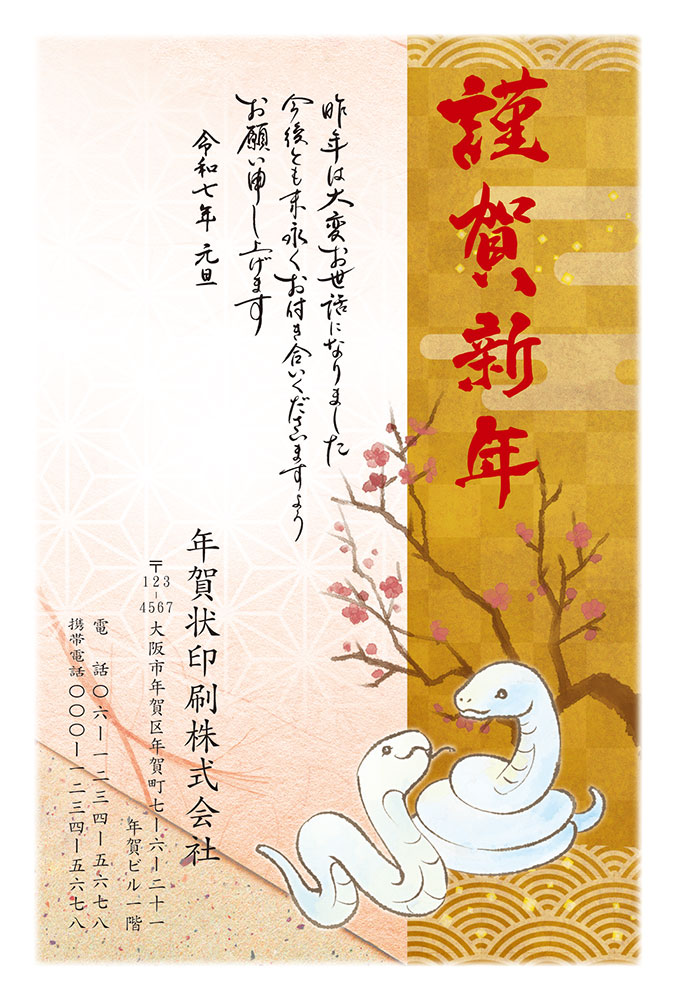 謹賀新年
昨年は大変お世話になりました
今後とも末永くお付き合いくださいますよう
お願い申し上げます
令和七年 元旦
年賀状印刷株式会社
〒123-4567 大阪市年賀区年賀町七ー六ー二十一
年賀ビル一階
電話〇六ー一二三四ー五六七八
携帯電話〇〇〇ー一二三四ー五六七八